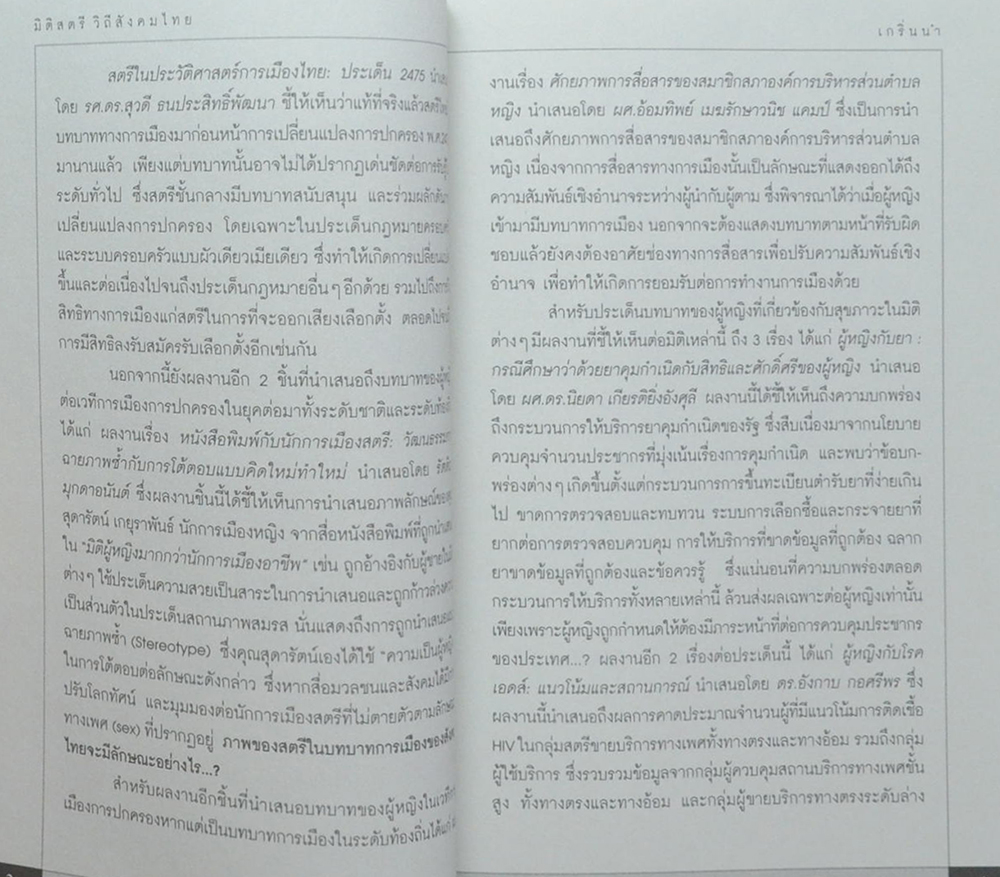 มิติสตรี วิถีสังคมไทย
สตรีในประวัติศาสตร์การเมืองไทย: ประเด็น 2475
โดย รศ.ดร.สุวดี ธนประสิทธิ์พัฒนา ชี้ให้เห็นว่าแท้ที่จริงแล้ว
บทบาททางการเมืองมาก่อนหน้าการเปลี่ยนแปลงการปกครอง
มานานแล้ว เพียงแต่บทบาทนั้นอาจไม่ได้ปรากฏเด่นชัดต่อการ
ระดับทั่วไป ซึ่งสตรีชั้นกลางมีบทบาทสนับสนุน และร่วม
เปลี่ยนแปลงการปกครอง โดยเฉพาะในประเด็นกฎหมาย
และระบบครอบครัวแบบผัวเดียวเมียเดียว ซึ่งทำให้เกิดการ
ขึ้นและต่อเนื่องไปจนถึงประเด็นกฎหมายอื่นๆ อีกด้วย รวมไปถึง
สิทธิทางการเมืองแก่สตรีในการที่จะออกเสียงเลือกตั้ง ตลอดไป
การมีสิทธิลงรับสมัครรับเลือกตั้งอีกเช่นกัน
นอกจากนี้ยังผลงานอีก 2 ชิ้นที่นำเสนอถึงบทบาทของ
ต่อเวทีการเมืองการปกครองในยุคต่อมาทั้งระดับชาติและระดับ
ได้แก่ ผลงานเรื่อง หนังสือพิมพ์กับนักการเมืองสตรี:
ฉายภาพซ้ำกับการโต้ตอบแบบคิดใหม่ทำใหม่ นำเสนอโดย
มุกดาอนันต์ ซึ่งผลงานชิ้นนี้ได้ชี้ให้เห็นการนำเสนอภาพลักษณ์
สุดารัตน์ เกยุราพันธ์ นักการเมืองหญิง จากสื่อหนังสือพิมพ์ที่ถูก
ใน "มิติผู้หญิงมากกว่านักการเมืองอาชีพ" เช่น ถูกอ้างอิงกับ
ต่างๆ ใช้ประเด็นความสวยเป็นสาระในการนำเสนอและถูกก้าวล่วง
เป็นส่วนตัวในประเด็นสถานภาพสมรส นั่นแสดงถึงการถูก
ฉายภาพซ้ำ (Stereotype) ซึ่งคุณสุดารัตน์เองได้ใช้
ในการโต้ตอบต่อลักษณะดังกล่าว ซึ่งหากสื่อมวลชนและสังคม
ปรับโลกทัศน์ และมุมมองต่อนักการเมืองสตรีที่ไม่ตายตัวตาม
ทางเพศ (sex) ที่ปรากฏอยู่ ภาพของสตรีในบทบาทการเมืองของ
ไทยจะมีลักษณะอย่างไร...?
สำหรับผลงานอีกชิ้นที่นำเสนอบทบาทของผู้หญิงใน
เมืองการปกครองหากแต่เป็นบทบาทการเมืองในระดับท้องถิ่นได้แก่
เกริ่นนำ
งานเรื่อง ศักยภาพการสื่อสารของสมาชิกสภาองค์การบริหารส่วนตำบล
หญิง นำเสนอโดย ผศ.อ้อมทิพย์ เมฆรักษาวนิช แคมป์ ซึ่งเป็นการนำ
เสนอถึงศักยภาพการสื่อสารของสมาชิกสภาองค์การบริหารส่วนตำบล
หญิง เนื่องจากการสื่อสารทางการเมืองนั้นเป็นลักษณะที่แสดงออกได้ถึง
ความสัมพันธ์เชิงอำนาจระหว่างผู้นำกับผู้ตาม ซึ่งพิจารณาได้ว่าเมื่อผู้หญิง
เข้ามามีบทบาทการเมือง นอกจากจะต้องแสดงบทบาทตามหน้าที่รับผิด
ชอบแล้วยังคงต้องอาศัยช่องทางการสื่อสารเพื่อปรับความสัมพันธ์เชิง
อำนาจ เพื่อทำให้เกิดการยอมรับต่อการทำงานการเมืองด้วย
สำหรับประเด็นบทบาทของผู้หญิงที่เกี่ยวข้องกับสุขภาวะในมิติ
ต่างๆ มีผลงานที่ชี้ให้เห็นต่อมิติเหล่านี้ ถึง 3 เรื่อง ได้แก่ ผู้หญิงกับยา :
กรณีศึกษาว่าด้วยยาคุมกำเนิดกับสิทธิและศักดิ์ศรีของผู้หญิง นำเสนอ
โดย ผศ.ดร.นิยดา เกียรติยิ่งอังศุลี ผลงานนี้ได้ชี้ให้เห็นถึงความบกพร่อง
ถึงกระบวนการให้บริการยาคุมกำเนิดของรัฐ ซึ่งสืบเนื่องมาจากนโยบาย
ควบคุมจำนวนประชากรที่มุ่งเน้นเรื่องการคุมกำเนิด และพบว่าข้อบก-
พร่องต่างๆ เกิดขึ้นตั้งแต่กระบวนการการขึ้นทะเบียนตำรับยาที่ง่ายเกิน
ไป ขาดการตรวจสอบและทบทวน ระบบการเลือกซื้อและกระจายยาที่
ยากต่อการตรวจสอบควบคุม การให้บริการที่ขาดข้อมูลที่ถูกต้อง ฉลาก
ยาขาดข้อมูลที่ถูกต้องและข้อควรรู้ ซึ่งแน่นอนที่ความบกพร่องตลอด
กระบวนการให้บริการทั้งหลายเหล่านี้ ล้วนส่งผลเฉพาะต่อผู้หญิงเท่านั้น
เพียงเพราะผู้หญิงถูกกำหนดให้ต้องมีภาระหน้าที่ต่อการควบคุมประชากร
ของประเทศ...? ผลงานอีก 2 เรื่องต่อประเด็นนี้ ได้แก่ ผู้หญิงกับโรค
เอดส์: แนวโน้มและสถานการณ์ นำเสนอโดย ดร.อังกาบ กอศรีพร ซึ่ง
ผลงานนี้นำเสนอถึงผลการคาดประมาณจำนวนผู้ที่มีแนวโน้มการติดเชื้อ
HIV ในกลุ่มสตรีขายบริการทางเพศทั้งทางตรงและทางอ้อม รวมถึงกลุ่ม
ผู้ใช้บริการ ซึ่งรวบรวมข้อมูลจากกลุ่มผู้ควบคุมสถานบริการทางเพศชั้น
สูง ทั้งทางตรงและทางอ้อม และกลุ่มผู้ขายบริการทางตรงระดับล่าง